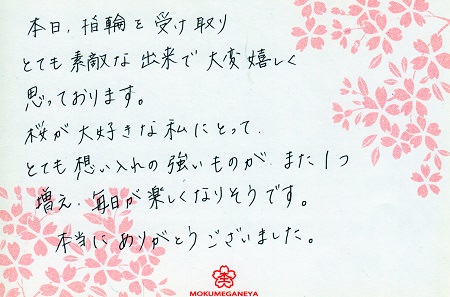 本日、指輪を受け取り
とても素敵な出来で大変嬉しく
思っております。
桜が大好きな私にとって、
とても想い入れの強いものが、また1つ
増え、毎日が楽しくなりそうです。
本当にありがとうございました。
MOKUMEGANEYA